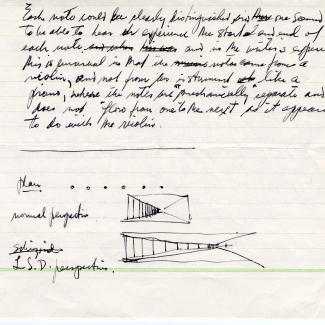 Each note could be clearly distinguished and one seemed
to be able to hear or experience the start and end of
each note and in the writer's experience
this is unusual in that the notes came from a
violin, and not from an instrument like a
piano, where the notes are "mechanically" separate and
does not "flow from one to the next" as it appears
to do with the violin.
Plan
normal perspective
L.S.D. perspective.